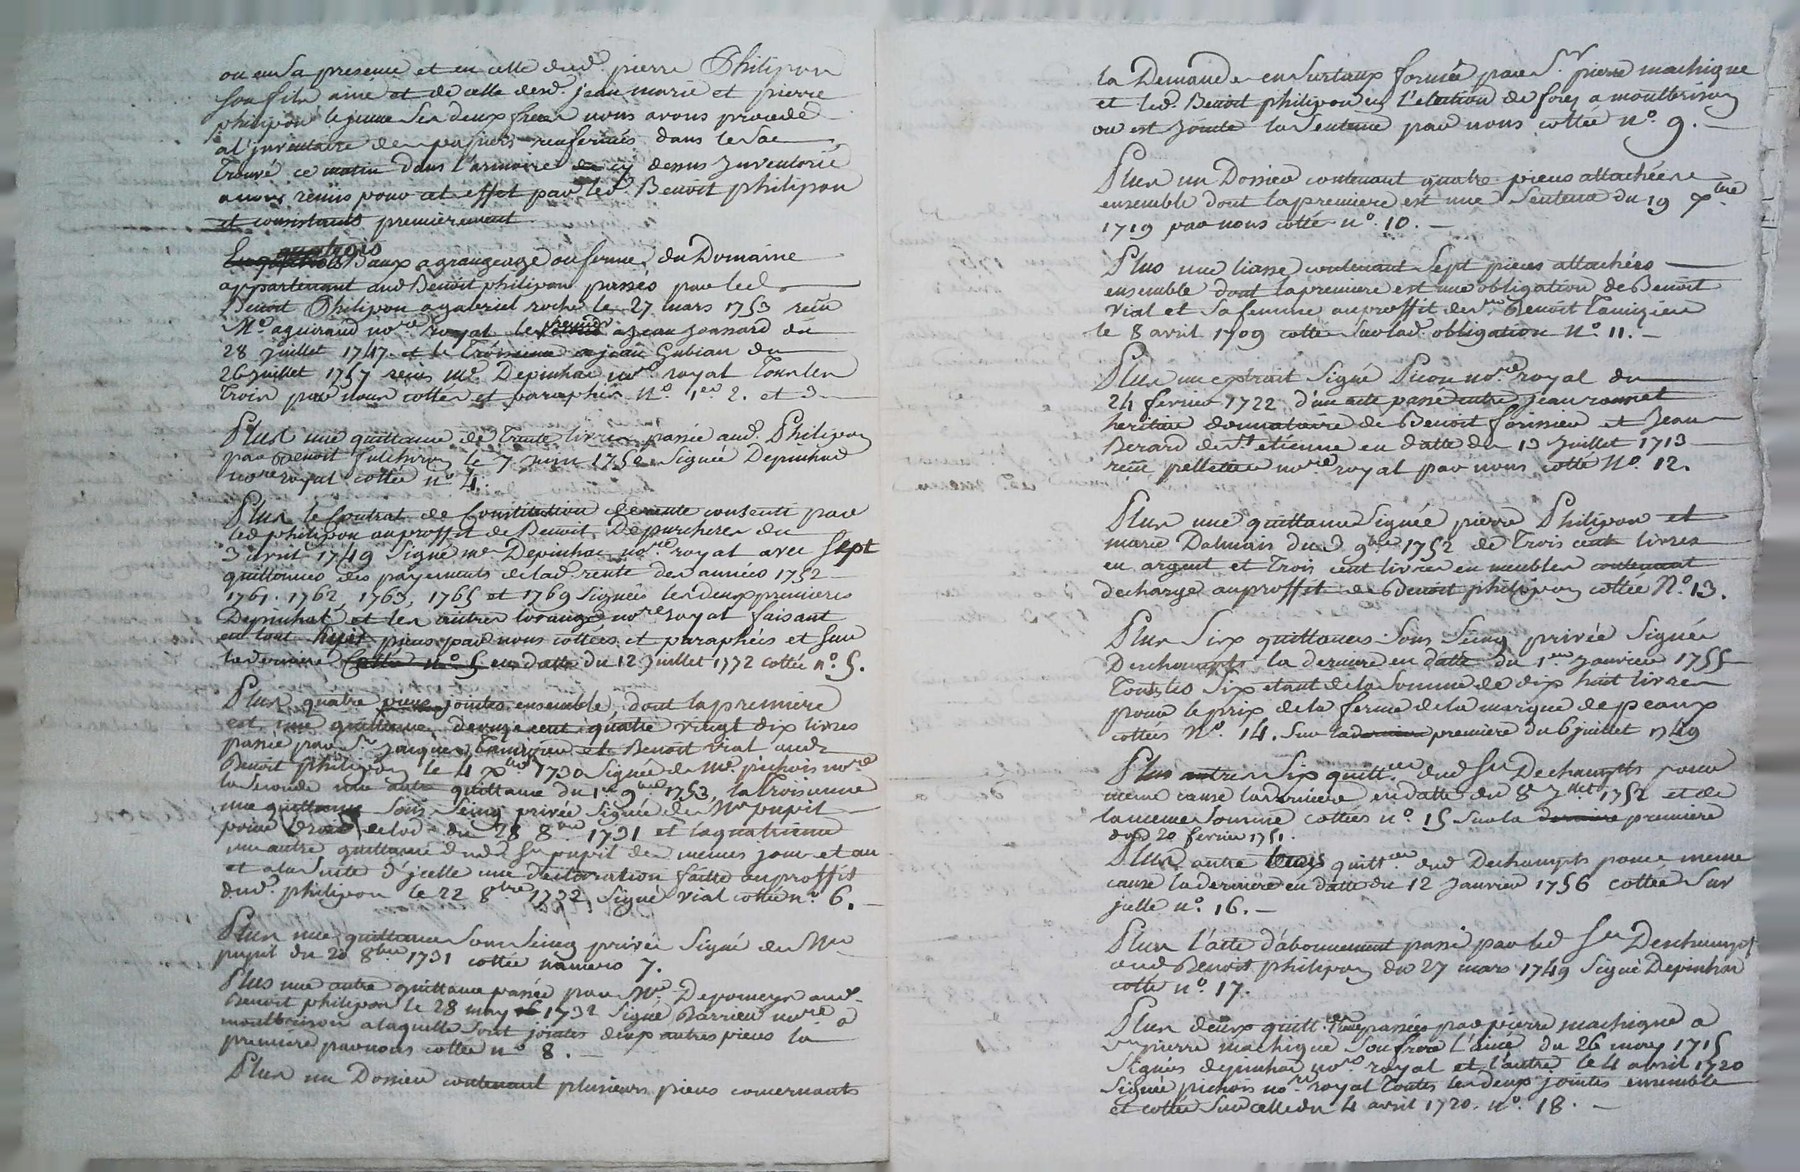 ou en sa presence et en celle dud. pierre Philipon
son fils ainé et de celle desd. jean marie et pierre
philipon le jeune ses deux freres nous avons procedé
a l'inventaire des papiers renfermés dans le sac
trouvé ce matin dans l'armoire cy dessus Inventorié
a nous remis pour cet effet par led. Benoit philipon
et consistants premierement
Baux a grangeage ou ferme du Domaine
appartenant aud Benoit philipon passés par led
Benoit Philipon a gabriel roche le 27 mars 1753 reçu
Me aguiraud nore royal le premier a jean Jossard du
28 Juillet 1747 et le Troisieme a jean Gubian du
26 juillet 1757 reçus Me. Depinhac nore royal Tous les
Trois par nous cottés et paraphés No. 1er 2. et 3
Plus une quittance de Trente livres passée aud. Philipon
par Benoit fulchiron le 7 Juin 1752 Signée Depinhac
nore royal cottée no. 4.
Plus le Contrat de Constitution de rente consenti par
led philipon au proffit de Benoit Depurcheres du
3 avril 1749 Signé me Depinhac nore royal avec Sept
quittances des payements de lad. rente des années 1752
1761. 1762, 1763, 1765 et 1769 Signées les deux premieres
Depinhac et les autres lorange nore royal faisant
en tout huit pieces par nous cottées et paraphées et sur
la derniere en datte du 12 Juillet 1772 cottée no. 5.
Plus quatre pieces jointes ensemble, dont la premiere
est une quittance de onze cent quatre vingt dix livres
passée par Sr. Jacques Tamizier et Benoit Vial aud.
Benoit philipon le 4 Xbre 1730 Signée de Me. pichois nore
la Seconde une autre quittance du 1er 9bre 1753, la Troisieme
une quittance Sous Seing privée Signée de Mr pupil
pour droit de lod du 28 8bre 1731 et la quatrieme
une autre quittance dud. Sr pupil des memes jour et an
et a la Suite d'jcelle une déclaration faitte au proffit
dud. philipon le 22 8bre 1732, Signé Vial cottée no. 6.
Plus une quittance Sous Seing privée Signé de Mr
pupil du 20 8bre 1731 cottée numero 7.
Plus une autre quittance passée par Mr. Depomeys aud.
Benoit philipon le 28 may 1732 Signé Barrieu nore a
montbrison a laquelle Sont jointes deux autres pieces la
premiere par nous cottée no 8.
Plus un Dossier contenant plusieurs pieces concernants
la Demande en Surtaux formée par Sr. pierre machique
et led. Benoit philipon en l'election de forez a montbrison
ou est Jointe la Sentence par nous cottée no. 9.
Plus un Dossier contenant quatre pieces attachées
ensemble dont la premiere est une Sentence du 19 Xbre
1719 par nous cotté no. 10.
Plus une liasse contenant Sept pieces attachées
ensemble dont la premiere est une obligation de Benoit
Vial et Sa femme au proffit de Sr Benoit Tamizier
le 8 avril 1709 cottée Sur lad. obligation No. 11.
Plus un extrait Signé Picon nore royal du
24 fevrier 1722 d'un acte passé entre jean ronnet
heritier donnataire de Benoit forissier et Jean
Berard de St etienne en datte du 13 Juillet 1713
reçu pelletier nore royal par nous cotté No. 12.
Plus une quittance Signée pierre Philipon et
marie Dalmais du 3 9bre 1752 de Trois cent livres
en argent et Trois cent livres en meubles contenant
decharge au proffit de Benoit philipon cottée No. 13.
Plus Six quittances Sous Seing privée Signée
Deschampts la derniere en datte du 1er Janvier 1755
Toutes les Six etant de la Somme de dix huit livres
pour le prix de la ferme de la marque de peaux
cottées No. 14. Sur la premiere du 6 juillet 1749
Plus autres Six quitt.ces dud Sr Dechampts pour
meme cause la derniere en datte du 8 Jllet 1752 et de
la meme Somme cottées no. 15 Sur la premiere
du 20 fevrier 1751.
Plus autre trois quitt.ces dud Dechampts pour meme
cause la derniere en datte du 12 Janvier 1756 cottée Sur
jcelle no. 16.
Plus l'acte d'abonnement passé par led Sr Deschampts
aud Benoit philipon du 27 mars 1749 Signé Depinhac
cotté no. 17.
Plus deux quitt.ces l'une passées par pierre machique a
pierre machique Son frere l'ainé du 26 may 1715
Signés depinhac nore royal et l'autre le 4 avril 1720
Signée pichois nore royal Toutes les deux jointes ensemble
et cottée Sur celle du 4 avril 1720. no. 18.